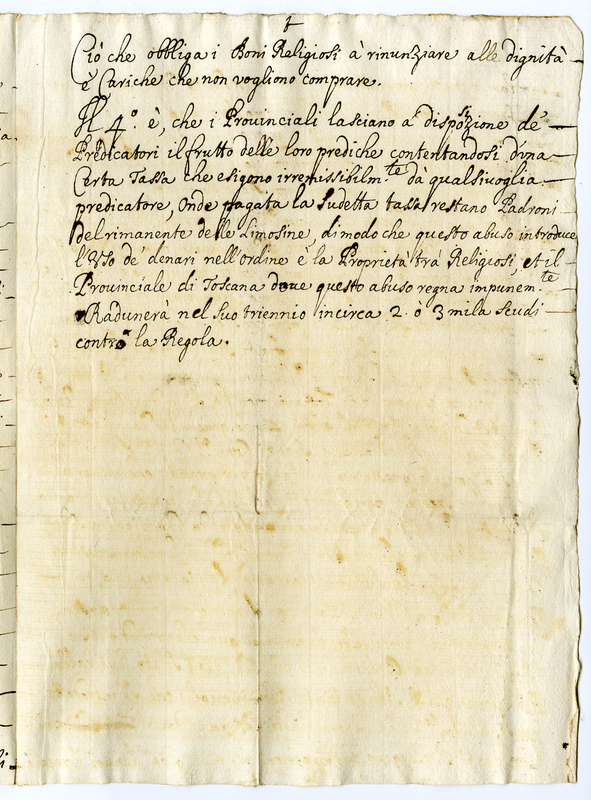 Ciò che obbliga i Boni Religiosi à rinunziare alle dignità
è Cariche che non vogliono comprare.
Il 4º. è, che i Provinciali lasciano a disposizione de'
Predicatori il frutto delle loro prediche contentandosi d'una
Certa Tassa che esigono irremissibilm.te dà qualsivoglia
predicatore, Onde pagata la Sudetta tassa restano Padroni
del rimanente delle Limosine, di modo che questo abuso introduce
l'Uso de' denari nell'ordine è la Proprietà trà Religiosi, et il
Provinciale di Toscana doue questo abuso regna impunem.te
Radunerà nel suo triennio incirca 2. ò 3 mila scudi
contro la Regola.